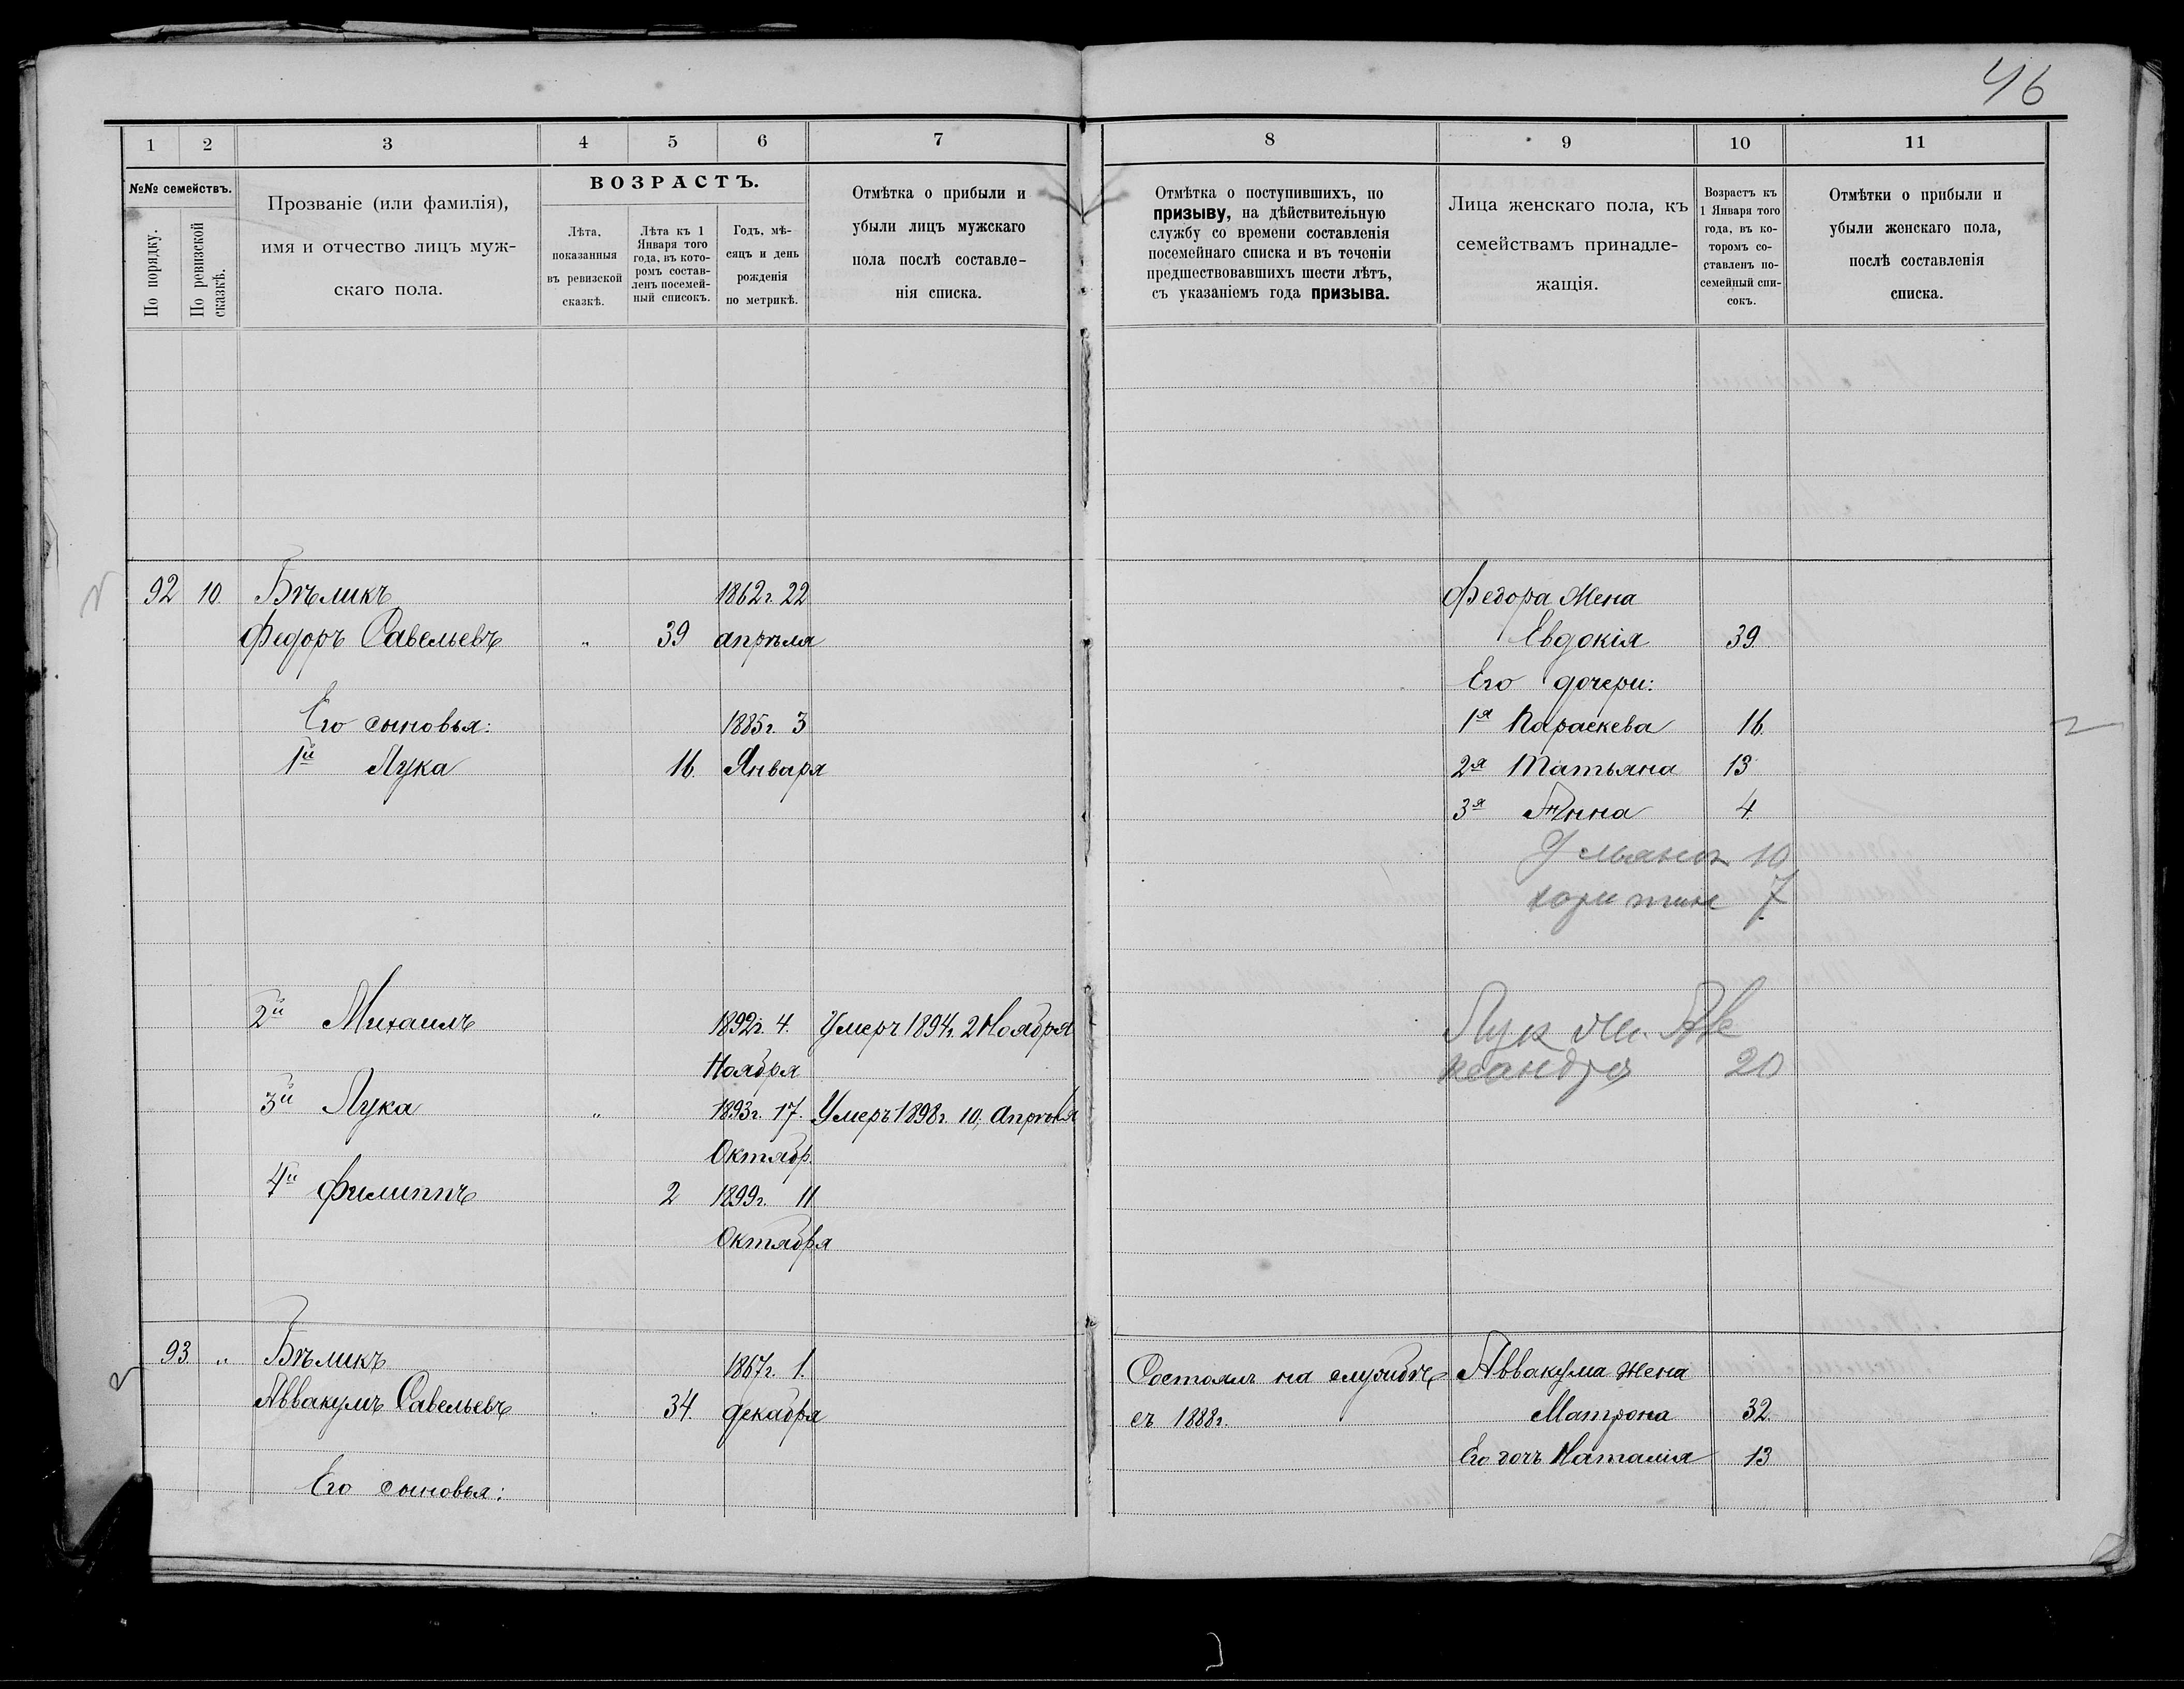 46
1 2 3 4 5 6 7 8 9 10 11
№№ семействъ.
По порядку.
По ревизской сказкѣ.
Прозваніе (или фамилія),
имя и отчество лицъ муж-
скаго пола.
ВОЗРАСТЪ.
Лѣта,
показанныя
въ ревизской
сказкѣ.
Лѣта къ 1
Января того
года, въ кото-
ромъ состав-
ленъ посемей-
ный списокъ.
Годъ, мѣ-
сяцъ и день
рожденія
по метрикѣ.
Отмѣтка о прибыли и
убыли лицъ мужскаго
пола послѣ составле-
нія списка.
Отмѣтка о поступившихъ, по
призыву, на дѣйствительную
службу со времени составленія
посемейнаго списка и въ теченіи
предшествовавшихъ шести лѣтъ,
съ указаніемъ года призыва.
Лица женскаго пола, къ
семействамъ принадле-
жащія.
Возрастъ къ
1 Января того
года, въ ко-
торомъ со-
ставленъ по-
семейный спи-
сокъ.
Отмѣтки о прибыли и
убыли женскаго пола,
послѣ составленія
списка.
92 10. Бѣликъ 1862г. 22 Федора Жена
Федоръ Савельевъ „ 39 апрѣля Евдокія 39.
Его дочери:
Его сыновья: 1885г. 3 1я Параскева 16.
1й Лука 16. Января 2я Татьяна 13
3я Анна 4.
10
7
2й Михаилъ 1892г. 4. Умеръ 1894г. 2 Ноября
Ноября 20
3й Лука „ 1893г. 17. Умеръ 1898г. 10, Апрѣля
Октябр.
4й Филиппъ 2 1899г. 11
Октября
93 „ Бѣликъ 1867г. 1. Состоялъ на службѣ Аввакума жена
Аввакумъ Савельевъ „ 34. декабря съ 1888г. Матрона 32.
Его дочь Наталія 13
Его сыновья: